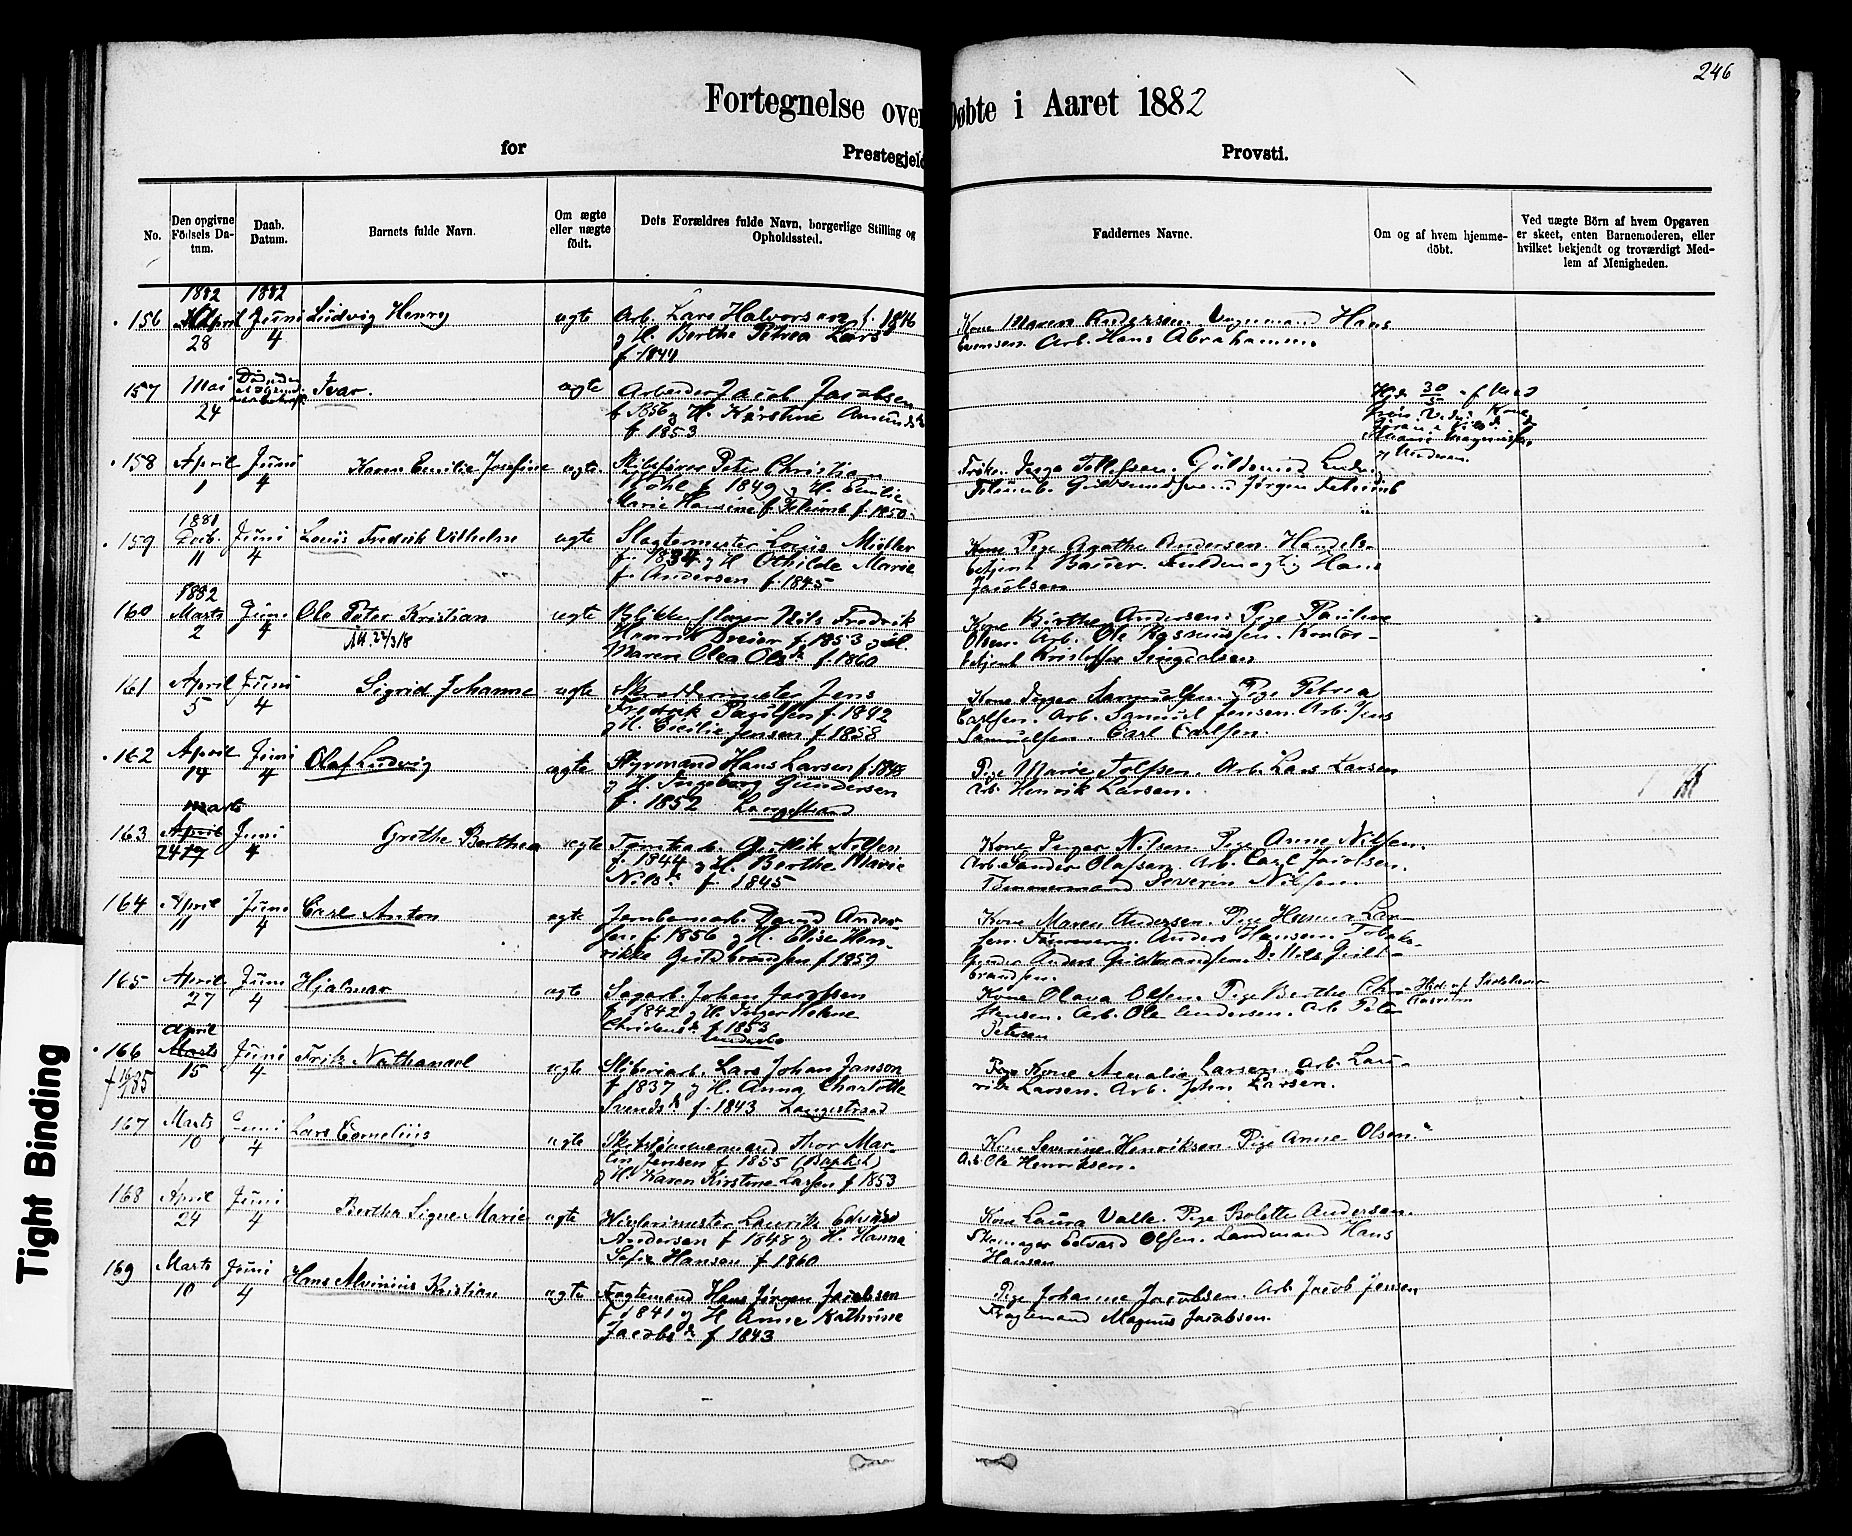 246
Fortegnelse over Døbte i Aaret 1882
for Prestegjeld Provsti.
No.
Den opgivne Födsels Datum.
Daab. Datum.
Barnets fulde Navn.
Om ægte eller uægte födt.
Dets Forældres fulde Navn, borgerlige Stilling og Opholdssted.
Faddernes Navne.
Om og af hvem hjemmedöbt.
Ved uægte Börn af hvem Opgaven er skeet, enten Barnemoderen, eller hvilket bekjendt og troværdigt Medlem af Menigheden.
156 1882 April 28 1882 Juni 4 Ludvig Henry ægte Arb. Lars Halvorsen f. 1846
og H. Berthe Petrea Lars
f 1844
Kone Maren Andersen. Hans
Evensen. Arb. Hans Abrahamsen.
157 Mai 24 Ivar. ægte Arbeider Jacob Jacobsen
f 1856 og H. Kirstine Amunds
f 1853
Hjd. 30/5 af
158 April 1 Juni 4 Karen Emilie Josefine ægte Skibsfører Peter Christian
f 1849 og H. Emilie
Marie Hansine f. f. 1850
Frøken Inga Tollefsen. Guldsmed Ludvig
Jørgen
159 1881 Decb. 11 Juni 4 Louis Fredrik Vilhelm ægte Slagtermester Louis Müller
f. 1834 og H Othilde Marie
f. Andersen f. 1845
Kone Pige Agathe Andersen Handels-
betjent Bauer. Fuldmægtig Hans
Jacobsen
160 1882 Marts 2 Juni 4 Ole Peter Kristian ægte Blikkenslager Nils Fredrik
Henrik Dreier f. 1853 og H.
Maren Olea Olsdr f. 1860
Att. 22/3 18
Kone Birthe Andersen. Pige Pauline
Olsen. Arb. Ole Rasmussen. Kontor-
betjent Kristoffer
161 April 5 Juni 4 Sigrid Johanne ægte Skreddermester Jens
Fredrik Paulsen f. 1842
og H. Cicilie Jensen f 1858
Kone Inger Samuelsen. Pige Petrea
Carlsen. Arb. Samuel Jensen. Arb. Jens
Samuelsen. Carl Carlsen.
162 April 14 Juni 4 Olaf Ludvig ægte Styrmand Hans Larsen f. 1848
og H. Ingeborg Gundersen
f. 1852 Langestrand
Pige Marie Tolfsen. Arb. Lars Larsen
Arb. Henrik Larsen.
163 Marts April 24 17 Juni 4 Grethe Berthea ægte Tomtearb. Gullik Nilsen
f. 1844 og H. Berthe Marie
Nilsdr f. 1845
Kone Inger Nilsen. Pige Anne Nilsen.
Arb. Sander Olafsen. Arb. Carl Jacobsen.
Tømmermand Severin Nilsen.
164 April 11 Juni 4 Carl Anton ægte Jernbanearb. David Ander-
sen f. 1856 og H. Elise Hen-
rikke Guldbrandsen f 1859
Kone Maren Andersen. Pige Hanna Lar-
sen. Tømmerm. Anders Hansen. Tobaks-
Anders Guldbrandsen. Do Nils Guld-
brandsen.
165 April 27 Juni 4 Hjalmar ægte Sagarb. Johan Jacobsen
f 1842 og H. Inger Helene
Christensdr f 1853
Kone Olava Olsen. Pige Berthe Chri-
stensen. Arb. Ole Andersen. Arb Peter
Petersen
Hjd. af
166 April Marts 15 Juni 4 Fritz Nathanael ægte Støberiarb. Lars Johan Janson
f 1837 og H. Anna Charlotte
Svendsdr f. 1843 Langestrand
Pige Kone Amalie Larsen. Arb. Lau-
ritz Larsen. Arb. John Larsen.
167 Marts 10 Juni 4 Lars Cornelius ægte Skibstømmermand Thor Mar-
tin Jensen f 1855 (Baptist)
og H. Karen Kirstine Larsen f 1853
Kone Severine Henriksen. Pige Anne Olsen.
Arb. Ole Henriksen.
168 April 24 Juni 4 Bertha Signe Marie ægte Høvlerimester Lauritz Edvard
Andersen f 1848 og H. Hanna
Sofie Hansen f 1860
Kone Laura Valle. Pige Bolette Andersen.
Skomager Edvard Olsen. Landmand Hans
Hansen
169 Marts 10 Juni 4 Hans Alvinius Kristian ægte Fragtemand Hans Jørgen Jacobsen
f 1841 og H Anne Kathrine
Jacobsdr f 1843
Pige Johanne Jacobsen. Arb. Jacob Jensen
Fragtemand Magnus Jacobsen.
Tight Binding